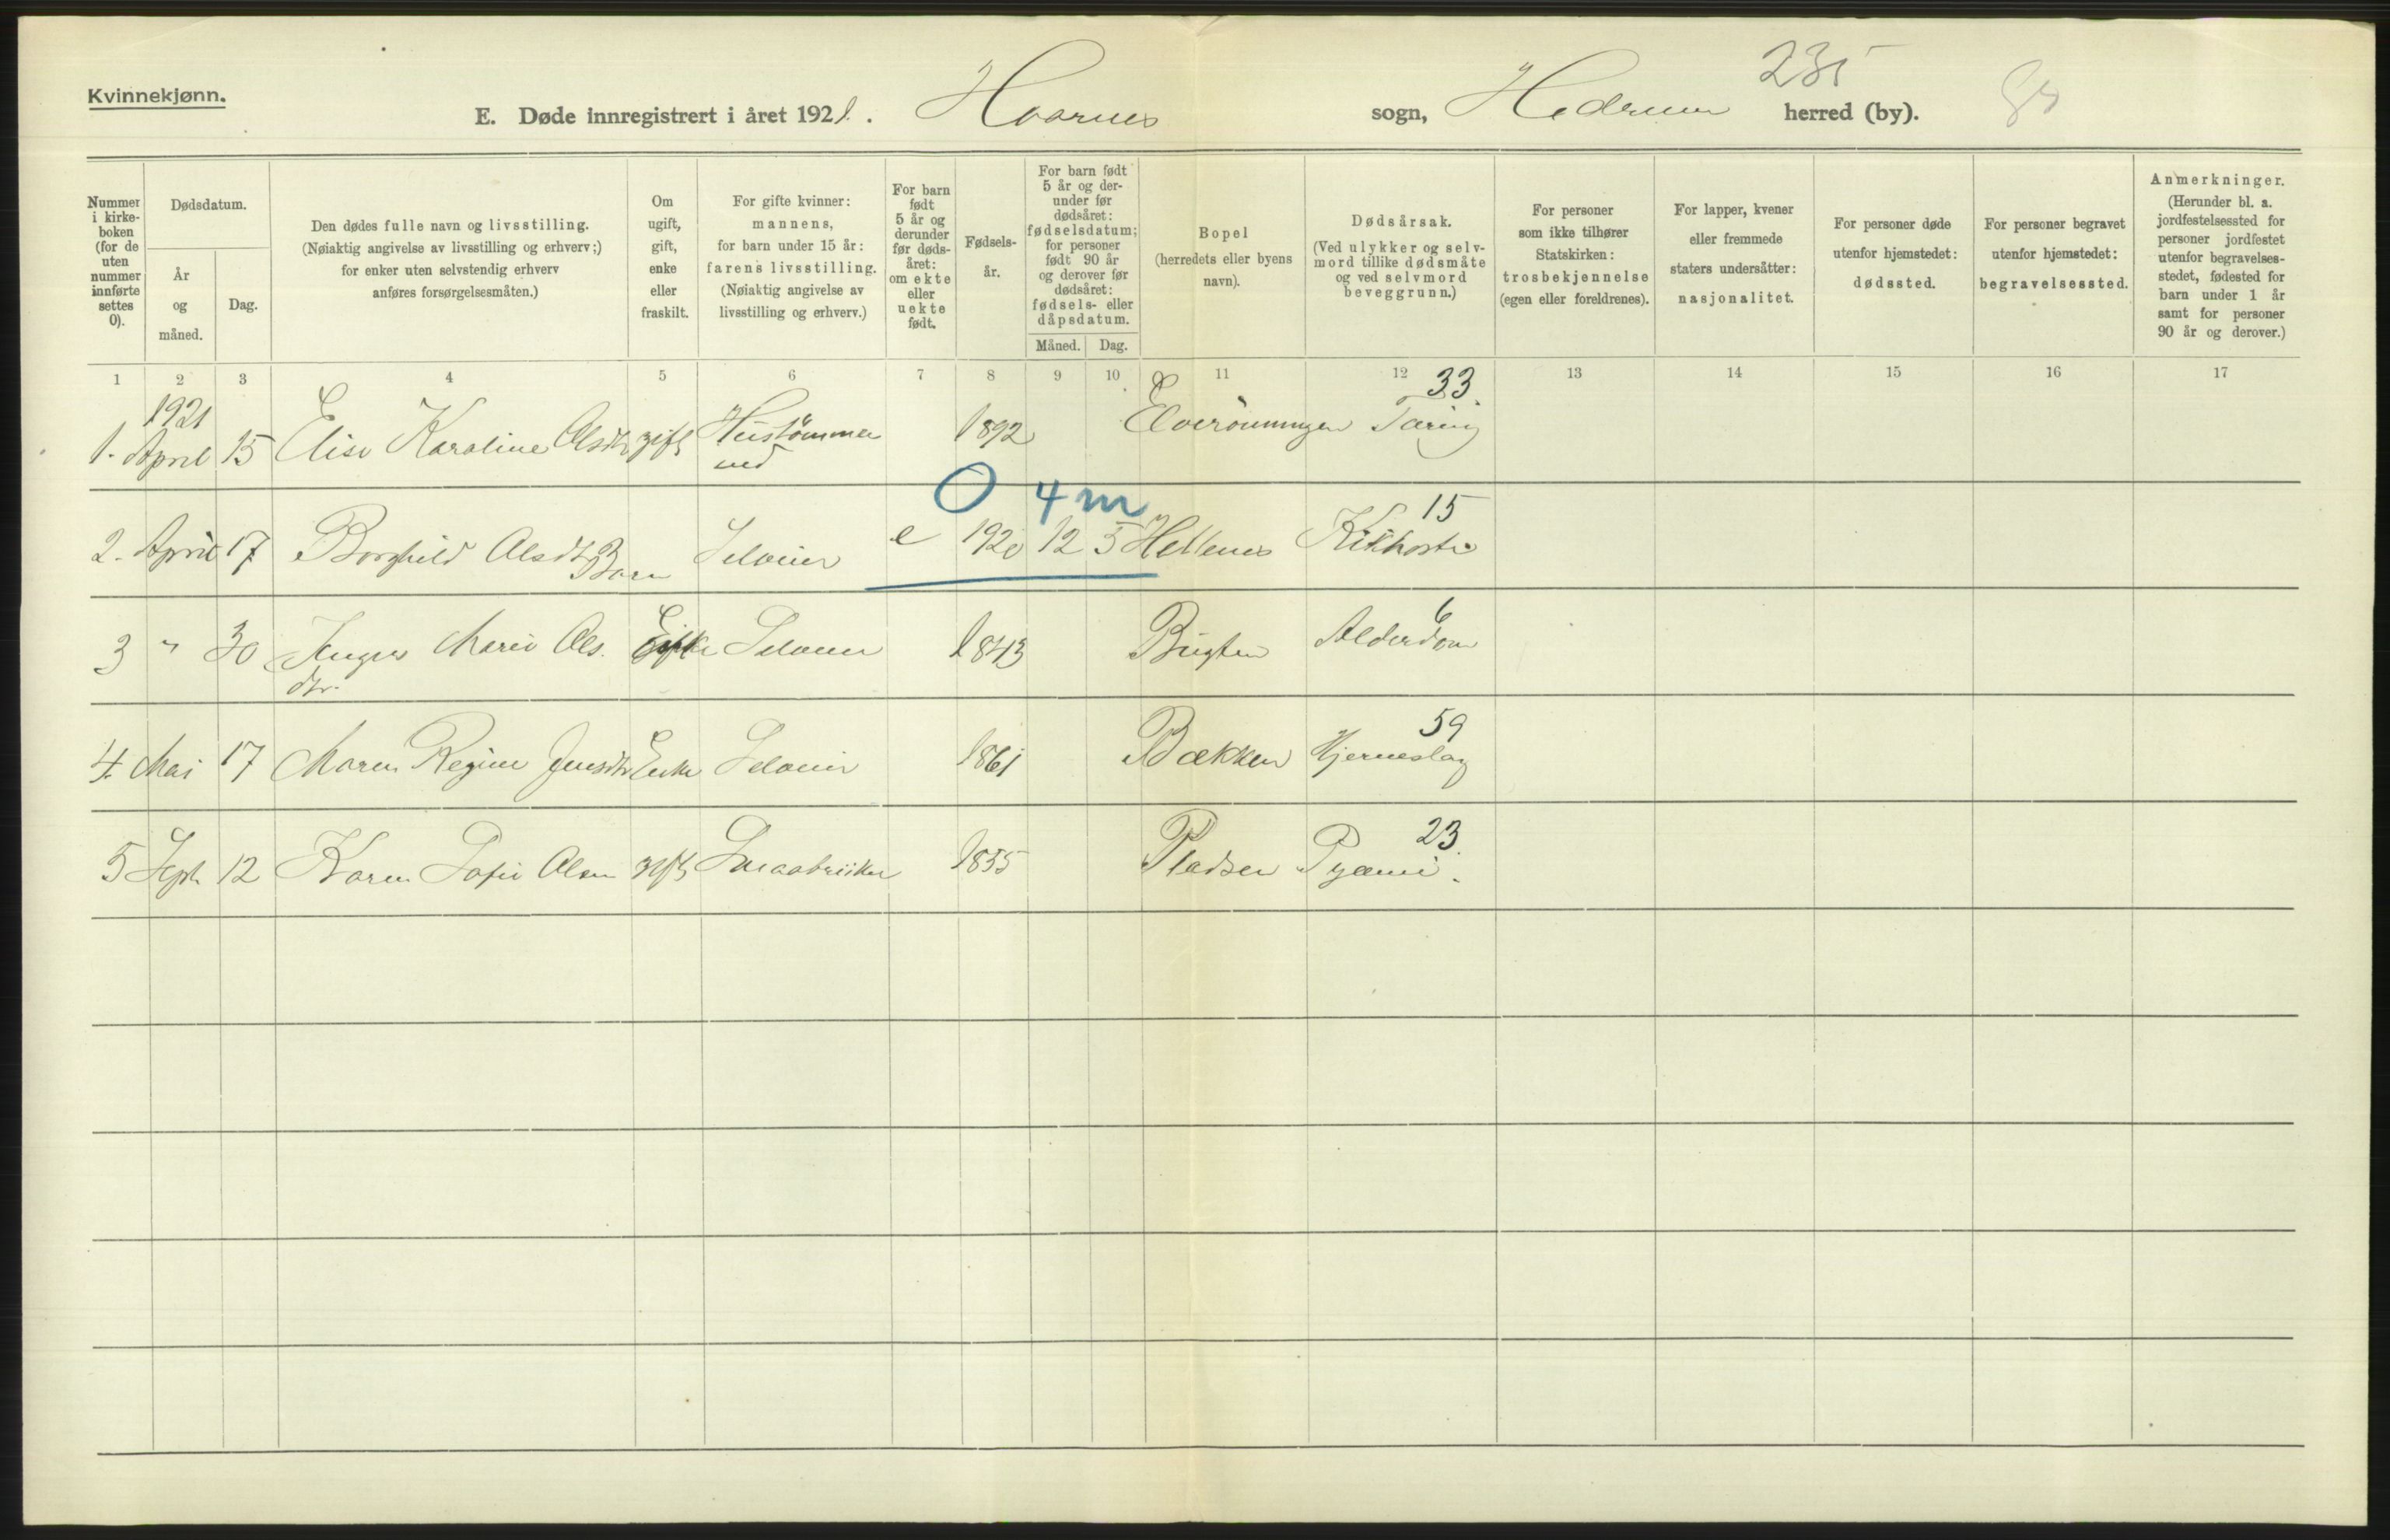 Kvinnekjønn.
E. Døde innregistrert i året 1921. Hvarnes sogn, Hedrum herred (by).
235
Nummer i kirkeboken (for de uten nummer innførte settes 0).
Dødsdatum.
År og måned.
Dag.
Den dødes fulle navn og livsstilling. (Nøiaktig angivelse av livsstilling og erhverv;) for enker uten selvstendig erhverv anføres forsørgelsesmåten.)
Om ugift, gift, enke eller fraskilt.
For gifte kvinner: mannens, for barn under 15 år: farens livsstilling. (Nøiaktig angivelse av livsstilling og erhverv.)
For barn født 5 år og derunder før dødsåret: om ekte eller uekte født.
Fødselsår.
For barn født 5 år og derunder før dødsåret: fødselsdatum; for personer født 90 år og derover før dødsåret: fødsels- eller dåpsdatum.
Måned. Dag.
Bopel (herredets eller byens navn).
Dødsårsak. (Ved ulykker og selvmord tillike dødsmåte og ved selvmord beveggrunn.)
For personer som ikke tilhører Statskirken: trosbekjennelse (egen eller foreldrenes).
For lapper, kvener eller fremmede staters undersåtter: nasjonalitet.
For personer døde utenfor hjemstedet: dødssted.
For personer begravet utenfor hjemstedet: begravelsessted.
Anmerkninger. (Herunder bl. a. jordfestelsessted for personer jordfestet utenfor begravelsesstedet, fødested for barn under 1 år samt for personer 90 år og derover.)
1 2 3 4 5 6 7 8 9 10 11 12 13 14 15 16 17
1921 33.
1. April 15 Elise Karoline Olsdtr gift Hustømmer 1892 Tæring
0 4 m
15
2. April 17 Borghild Olsdtr Barn Seleier e 1920 12 5 Kikhoste
6
3 " 30 Inger Marie Ols. Enke Seleier 1843 Alderdom
dtr.
59
4. Mai 17 Maren Regine Jensdtr Enke Seleier 1861 Bækken Hjerneslag
23.
5 Sept. 12 Karen Sofie Olsen gift Smaabruker 1855 Pladsen Pyæmi.